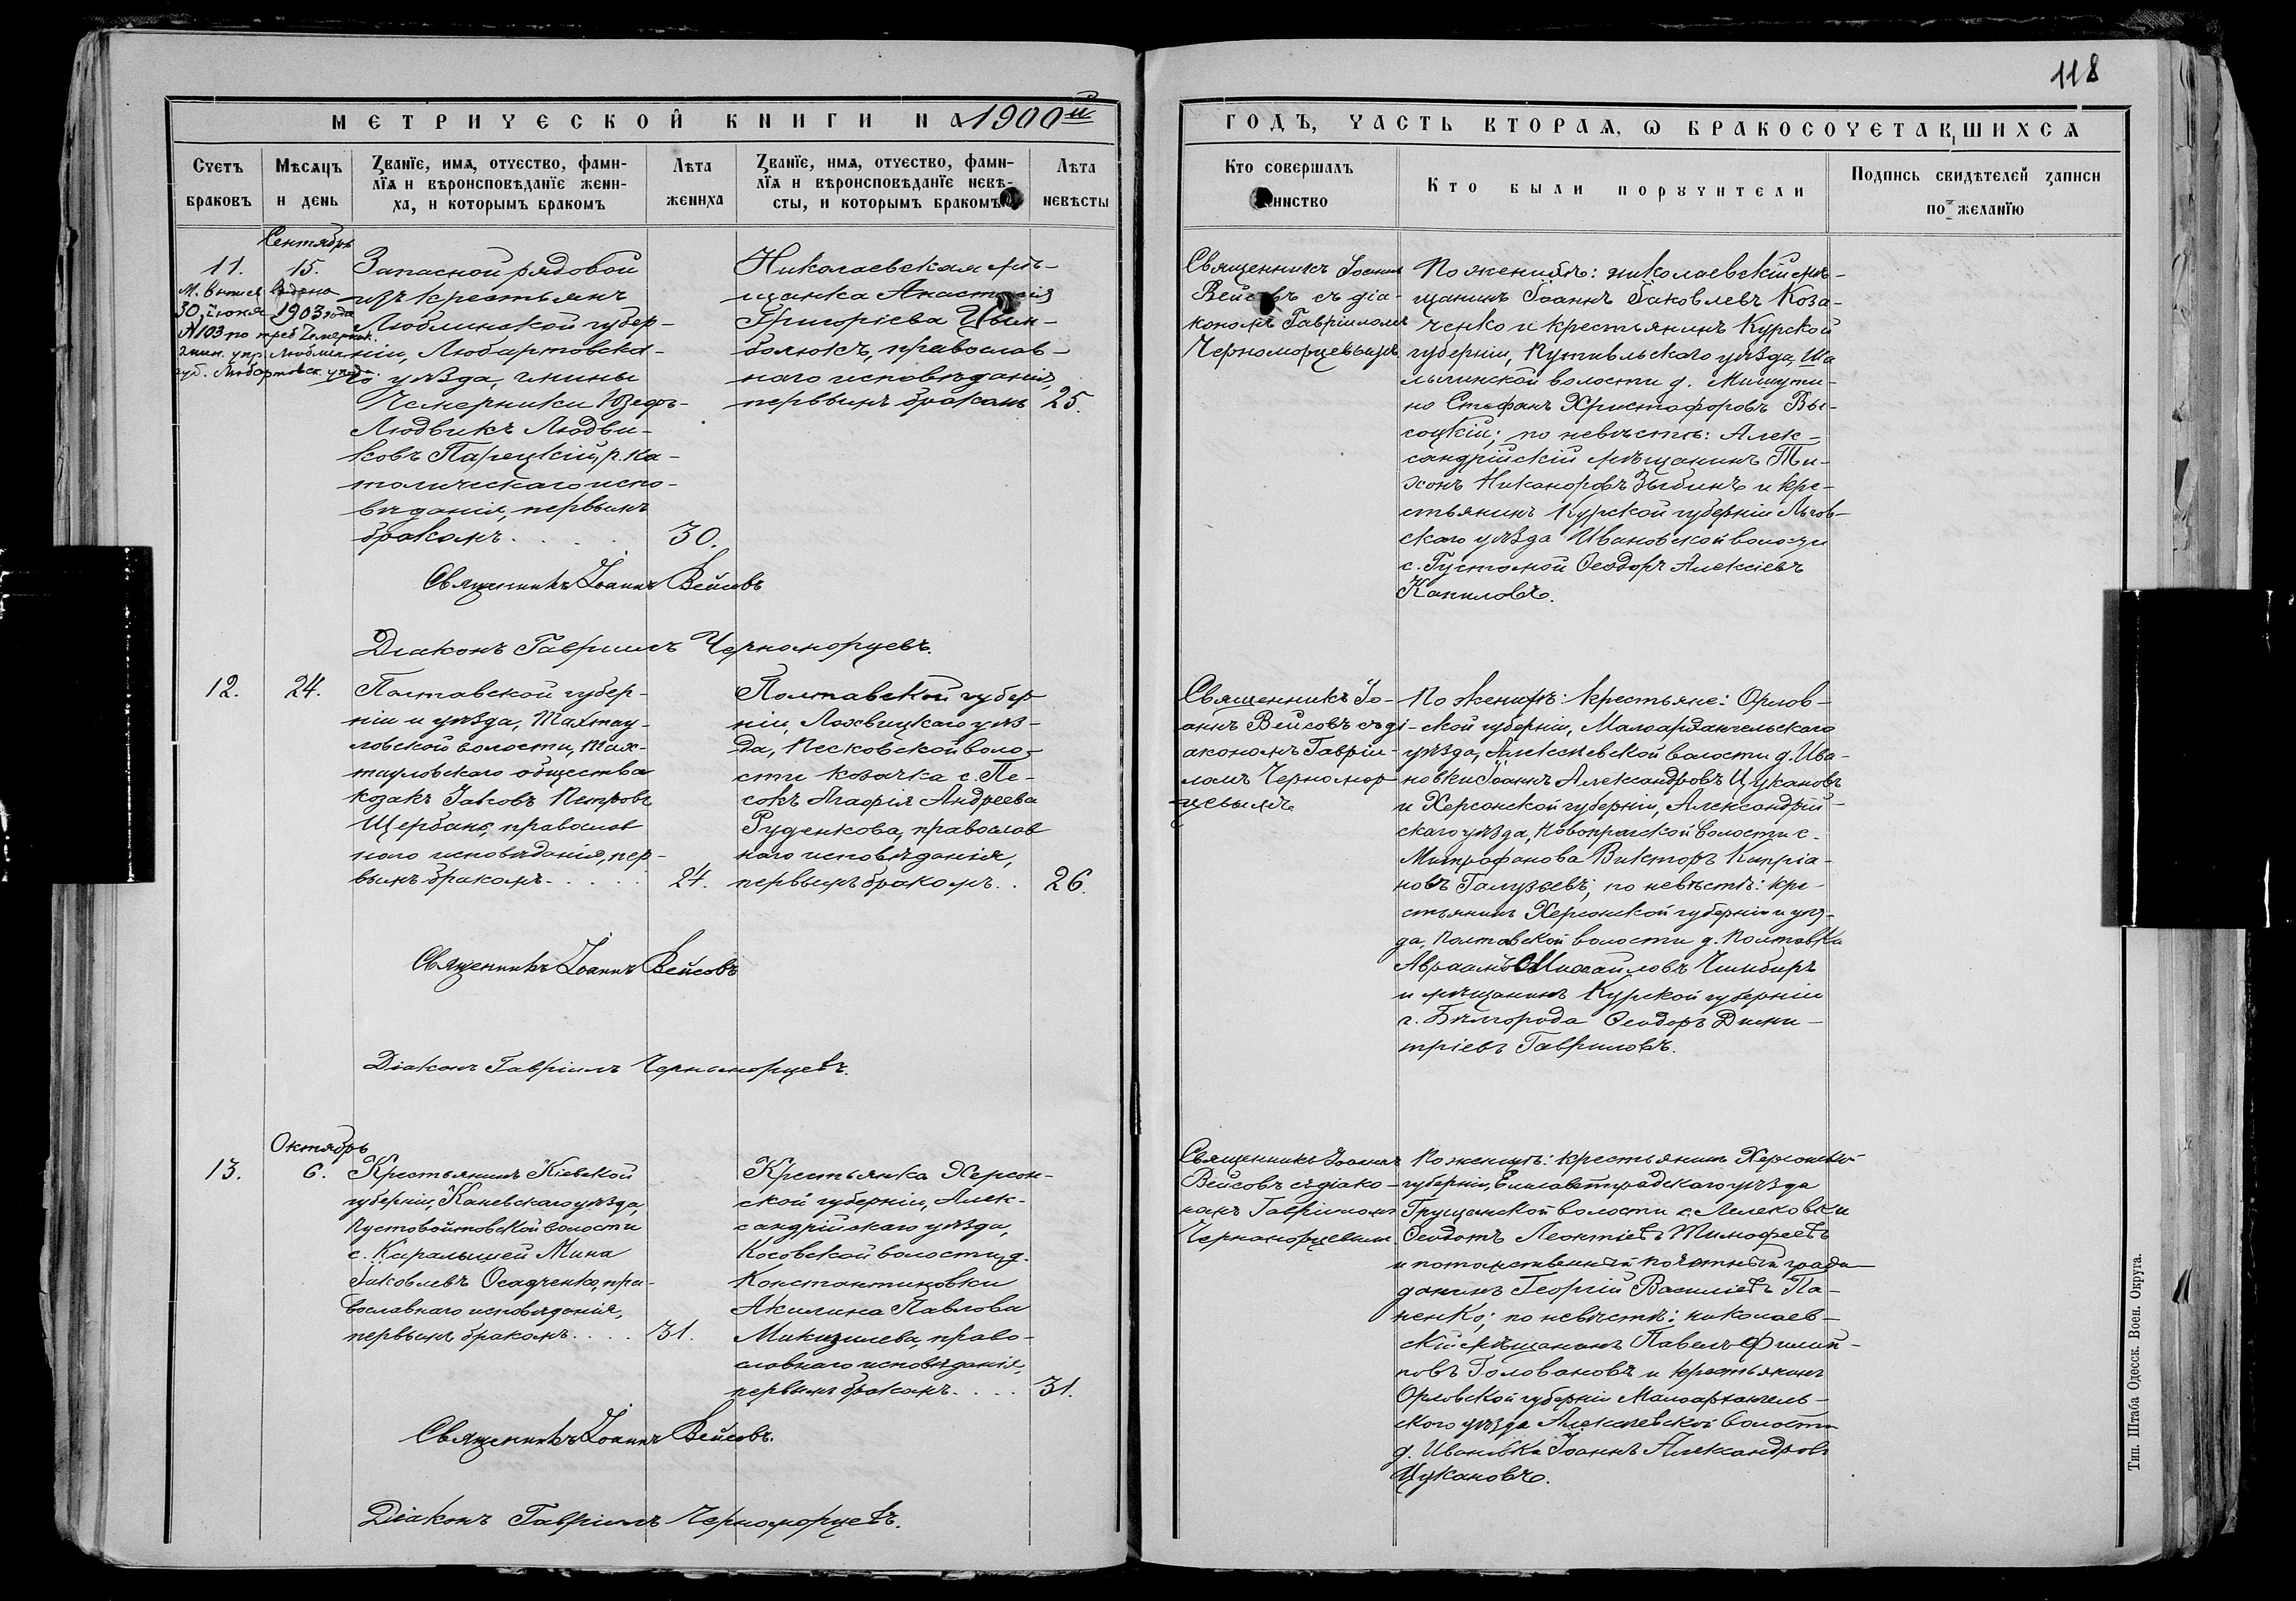 118
МЕТРИЧЕСКОЙ КНИГИ НА 1900й
ГОДЪ, ЧАСТЬ ВТОРАЯ, Ѡ БРАКОСОЧЕТАВШИХСЯ
Счетъ браковъ
Мѣсяцъ и день
Званїе, имя, отчество, фами-
лїя и вѣроисповѣданїе жени-
ха, и которымъ бракомъ
Лѣта жениха
Званїе, имя, отчество, фами-
лїя и вѣроисповѣданїе невѣ-
сты, и которымъ бракомъ
Лѣта невѣсты
Кто совершалъ
Кто были поручители
Подпись свидѣтелей записи
по желанїю
Сентябрь
11.
15.
М. выпись выдана
30 іюня 1903 года
№103 по треб Чемерник.
гмин. упр. Люблин.
губ. Любартовск. уѣзда
Запасной рядовой
изъ крестьянъ
Люблинской губер-
ніи, Любартовска-
го уѣзда, гмины
Чемерники Юзефъ-
Людвикъ Людви-
ковъ Парецкій, р. ка-
толическаго испо-
вѣданія, первымъ
бракомъ
30.
Николаевская мѣ-
щанка Анастасія
Григоріева Цым-
балюкъ, православ-
наго исповѣданія,
первымъ бракомъ
25.
Священникъ Іоаннъ Вейсовъ
Діаконъ Гавріилъ Черноморцевъ.
Священникъ Іоаннъ
Вейсовъ съ діа-
кономъ Гавріиломъ
Черноморцевымъ
По женихѣ: николаевскій мѣ-
щанинъ Іоаннъ Іаковлевъ Коза-
ченко и крестьянинъ Курской
губерніи, Путивльскаго уѣзда, Ша
лыгинской волости д. Мишути-
но Стефанъ Христофоровъ Вы-
соцкій; по невѣстѣ: Алек-
сандрійскій мѣщанинъ Ти-
хонъ Никаноровъ Зыбинъ и кре-
стьянинъ Курской губерніи Льгов-
скаго уѣзда Ивановской волости
с. Густомой Ѳеодоръ Алексіевъ
Каниловъ.
12.
24.
Полтавской губер-
ніи и уѣзда, Тахтау-
ловской волости, Тах-
тауловскаго общества
козакъ Іаковъ Петровъ
Щербань, православ
наго исповѣданія, пер-
вымъ бракомъ
24.
Полтавской губер
ніи, Лохвицкаго уѣз-
да, Песковской воло-
сти козачка с. Пе-
сокъ Агафія Андреева
Руденкова, православ
наго исповѣданія,
первымъ бракомъ
26.
Священникъ Іоаннъ Вейсовъ
Діаконъ Гавріилъ Черноморцевъ.
Священникъ Іо-
аннъ Вейсовъ съ ді-
акономъ Гавріи-
ломъ Черномор-
цевымъ
По женихѣ: крестьяне: Орлов-
ской губерніи, Малоархангельскаго
уѣзда, Алексѣевской волости д. Ива-
новки Іоаннъ Александровъ Цукановъ
и Херсонской губерніи, Александрій-
скаго уѣзда, Новопражской волости с.
Митрофанова Викторъ Кипріа-
новъ Галузьевъ; по невѣстѣ: кре-
стьянинъ Херсонской губерніи и уѣз-
да, Полтавской волости д. Полтавки
Авраамъ Михайловъ Чимбиръ
и мѣщанинъ Курской губерніи
г. Бѣлгорода Ѳеодоръ Дими-
тріевъ Гавриловъ.
Октябрь
13.
6.
Крестьянинъ Кіевской
губерніи, Каневскаго уѣзда,
Пустовойтовской волости
с. Карапышей Мина
Іаковлевъ Осадченко, пра-
вославнаго исповѣданія,
первымъ бракомъ
31.
Крестьянка Херсон-
ской губерніи, Алек-
сандрійскаго уѣзда,
Косовской волости, д.
Константиновки
Акилина Павлова
Микизилева, право-
славнаго исповѣданія,
первымъ бракомъ
31.
Священникъ Іоаннъ Вейсовъ.
Діаконъ Гавріилъ Черноморцевъ.
Священникъ Іоаннъ
Вейсовъ съ діако-
номъ Гавріиломъ
Черноморцевымъ
По женихѣ: крестьянинъ Херсонской
губерніи, Елисаветградскаго уѣзда
Грущанской волости с. Лелековки
Ѳеодотъ Леонтіевъ Тимофеевъ
и потомственный почетный граж-
данинъ Георгій Василіевъ Па-
ненко; по невѣстѣ: николаев-
скій мѣщанинъ Павелъ Филип-
повъ Головановъ и крестьянинъ
Орловской губерніи Малоархангель-
скаго уѣзда Алексѣевской волости
д. Ивановки Іоаннъ Александровъ
Цукановъ.
Тип. Штаба Одесск. Воен. Округа.